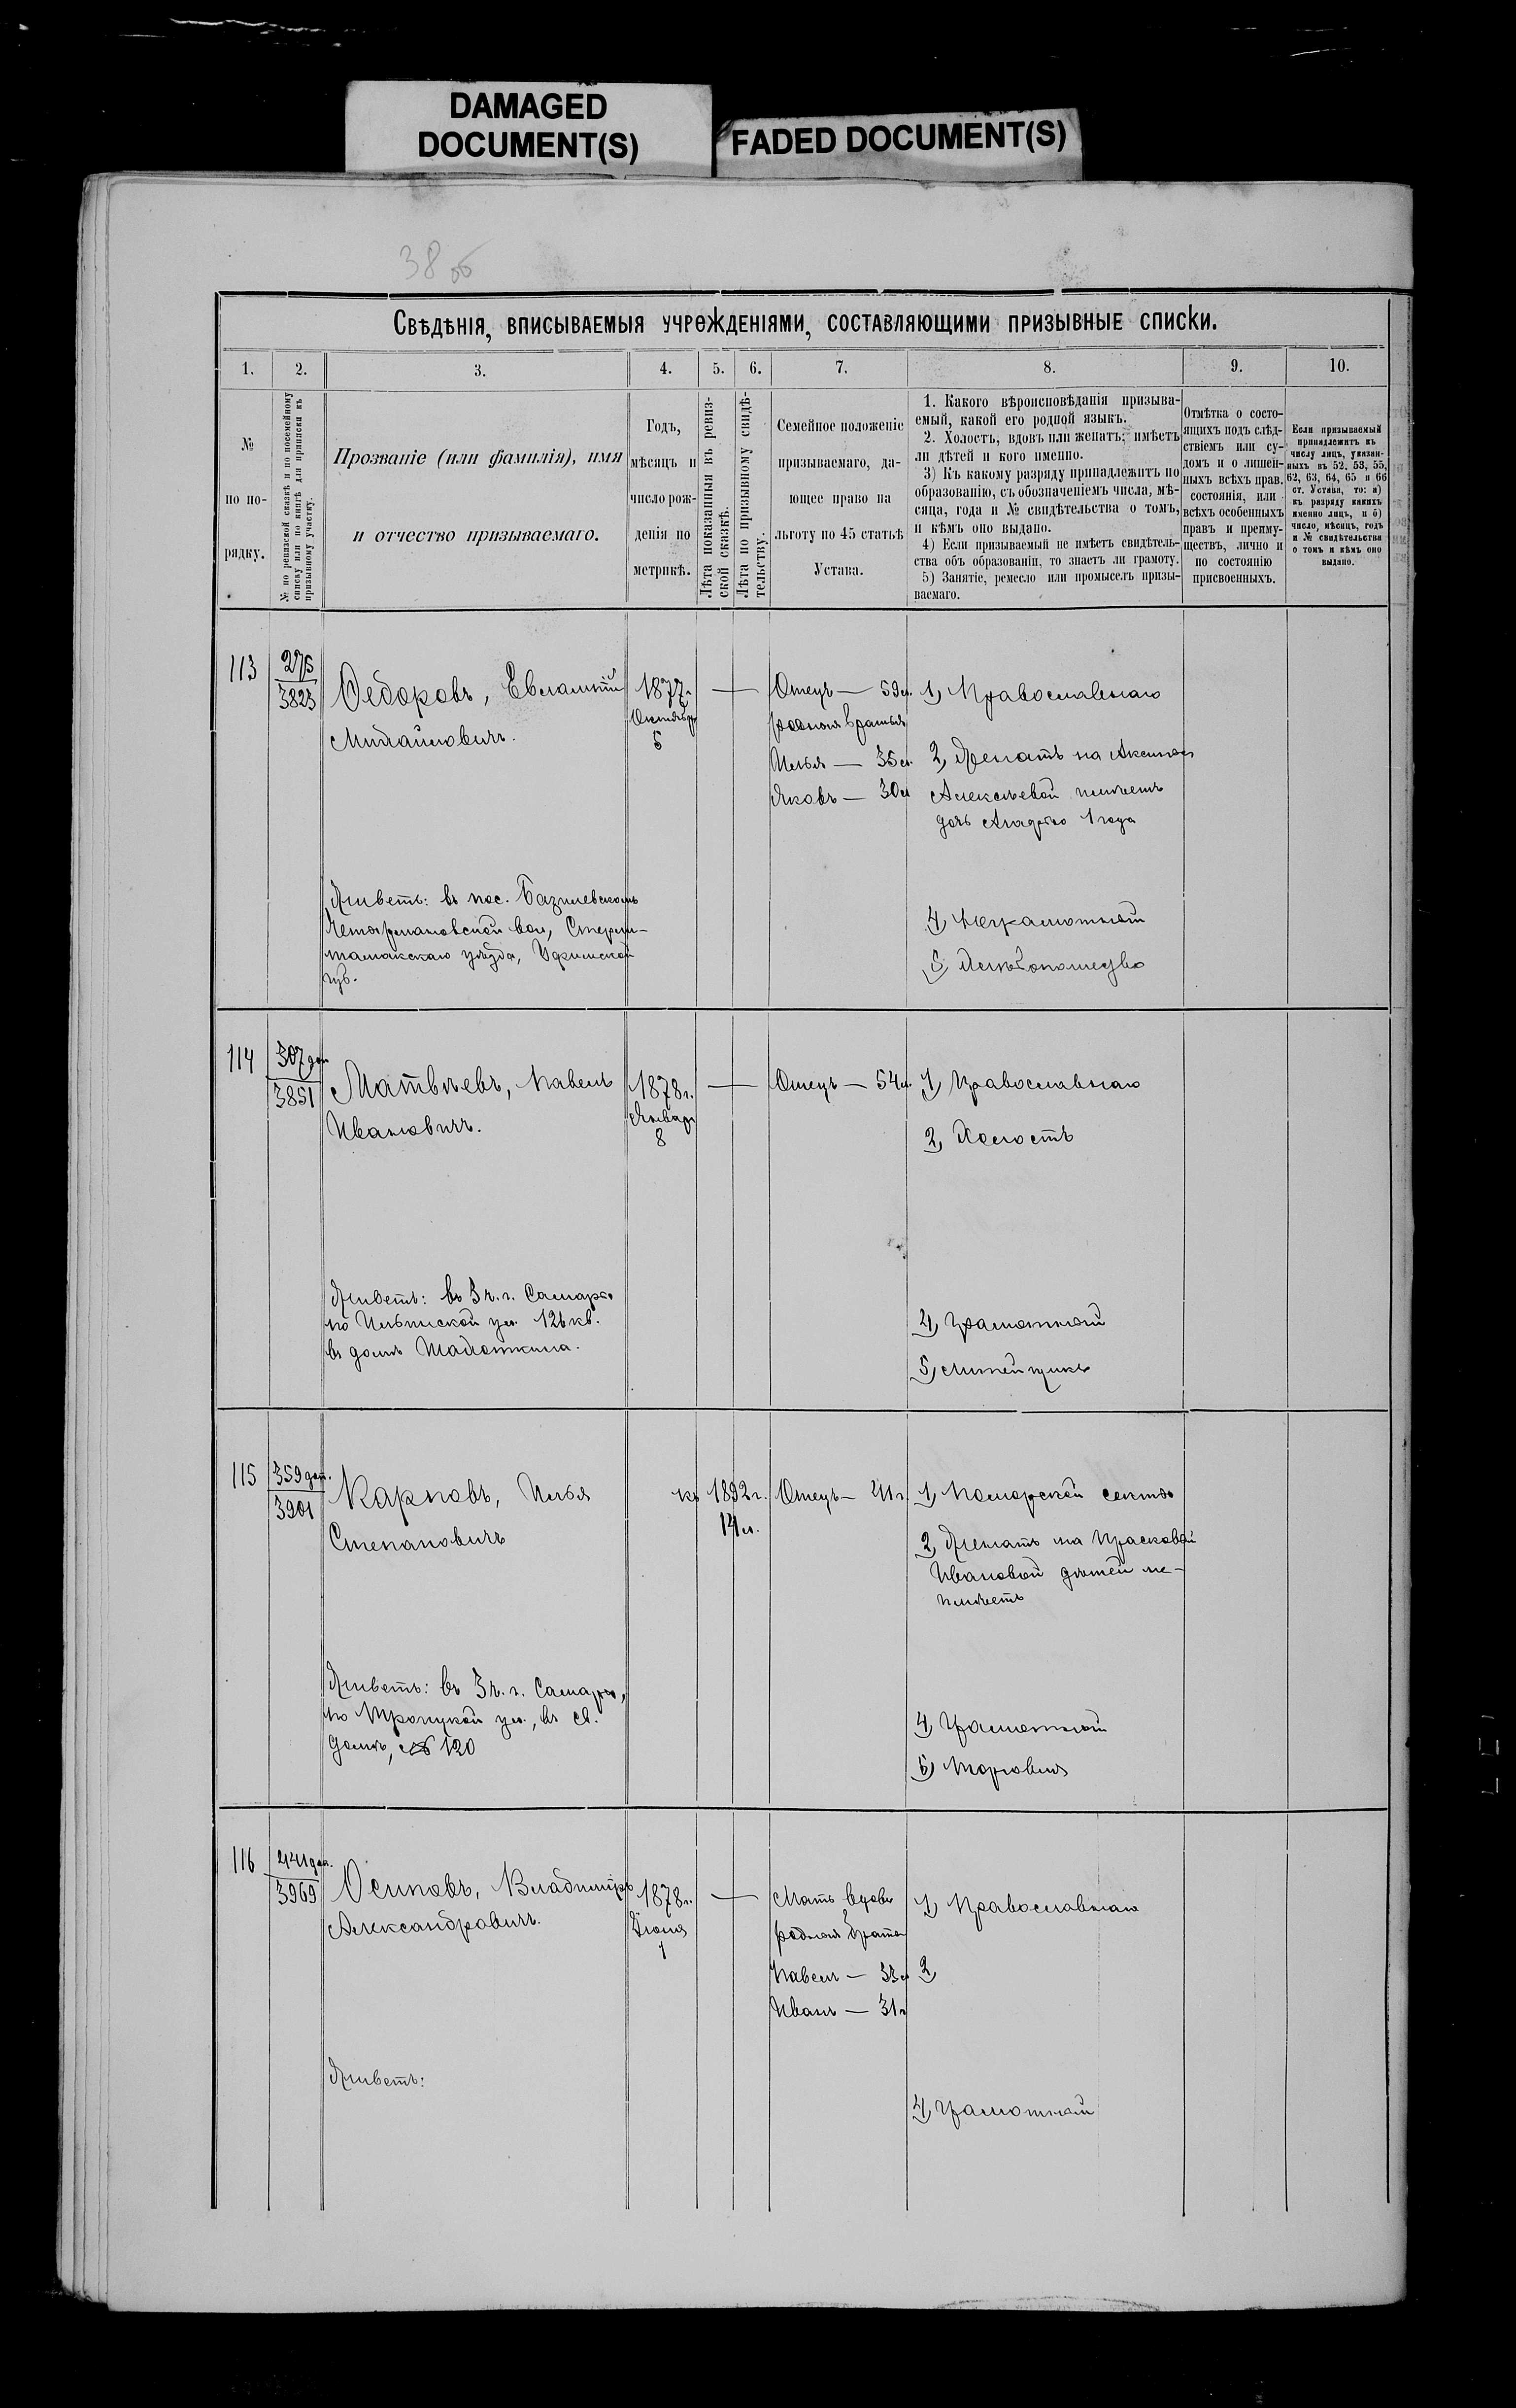 DAMAGED
DOCUMENT(S)
FADED DOCUMENT(S)
38 об
Свѣдѣнія, вписываемыя учрежденіями, составляющими призывные списки.
1. 2. 3. 4. 5. 6. 7. 8. 9. 10.
№
по по-
рядку.
№ по ревизской сказкѣ и по посемейному
списку или по книгѣ для приписки къ
призывному участку.
Прозваніе (или фамилія), имя
и отчество призываемаго.
Годъ,
мѣсяцъ и
число рож-
денія по
метрикѣ.
Лѣта показанныя въ ревиз-
ской сказкѣ.
Лѣта по призывному свидѣ-
тельству.
Семейное положеніе
призываемаго, да-
ющее право на
льготу по 45 статьѣ
Устава.
1. Какого вѣроисповѣданія призыва-
емый, какой его родной языкъ.
2. Холостъ, вдовъ или женатъ; имѣетъ
ли дѣтей и кого именно.
3) Къ какому разряду принадлежитъ по
образованію, съ обозначеніемъ числа, мѣ-
сяца, года и № свидѣтельства о томъ,
и кѣмъ оно выдано.
4) Если призываемый не имѣетъ свидѣтель-
ства объ образованіи, то знаетъ ли грамоту.
5) Занятіе, ремесло или промыселъ призы-
ваемаго.
Отмѣтка о состо-
ящихъ подъ слѣд-
ствіемъ или су-
домъ и о лишен-
ныхъ всѣхъ прав.
состоянія, или
всѣхъ особенныхъ
правъ и преиму-
ществъ, лично и
по состоянію
присвоенныхъ.
Если призываемый
принадлежитъ къ
числу лицъ, указан-
ныхъ въ 52, 53, 55,
62, 63, 64, 65 и 66
ст. Устава, то: а)
къ разряду какихъ
именно лицъ, и б)
число, мѣсяцъ, годъ
и № свидѣтельства
о томъ и кѣмъ оно
выдано.
113
275
3823
Ѳедоровъ, Евлампій
Михайловичъ.
1877 г.
Октября
5
—
Отецъ — 59 л.
родныя братья
Илья — 35 л.
Яковъ — 30 л
1) Православнаго
2) Женатъ на Аксиньѣ
Алексѣевой имѣетъ
дочь 1 года
Живетъ: въ пос. Базилевскомъ
вол, Стерли-
тамакскаго уѣзда, Уфимской
губ.
4) Неграмотный
5) Хлѣбопашество
114
307 доп
3851
Матвѣевъ, Павелъ
Ивановичъ.
1878 г.
Январ
8
—
Отецъ — 54 л.
1) Православнаго
2) Холостъ
Живетъ: въ 3 ч. г. Самары
по Ильинской ул. 126 кв.
въ домѣ
4) Грамотный
5) Литейщикъ
115
359 доп.
3901
Карповъ, Илья
Степановичъ
къ 1892 г.
14 л.
Отецъ — 41 г.
1) Поморской секты
2) Женатъ на Прасковьи
Ивановой дѣтей не-
имѣетъ
Живетъ: въ 3 ч. г. Самары,
по Троицкой ул., въ св.
домѣ, № 120
4) Грамотный
5) Торговля
116
441 доп.
3969
Осиповъ, Владиміръ
Александровичъ.
1878 г.
Іюня
1
—
Мать вдова
родныя братья
Павелъ — 33 л
Иванъ — 31 г
1) Православнаго
2)
Живетъ:
4) Грамотный